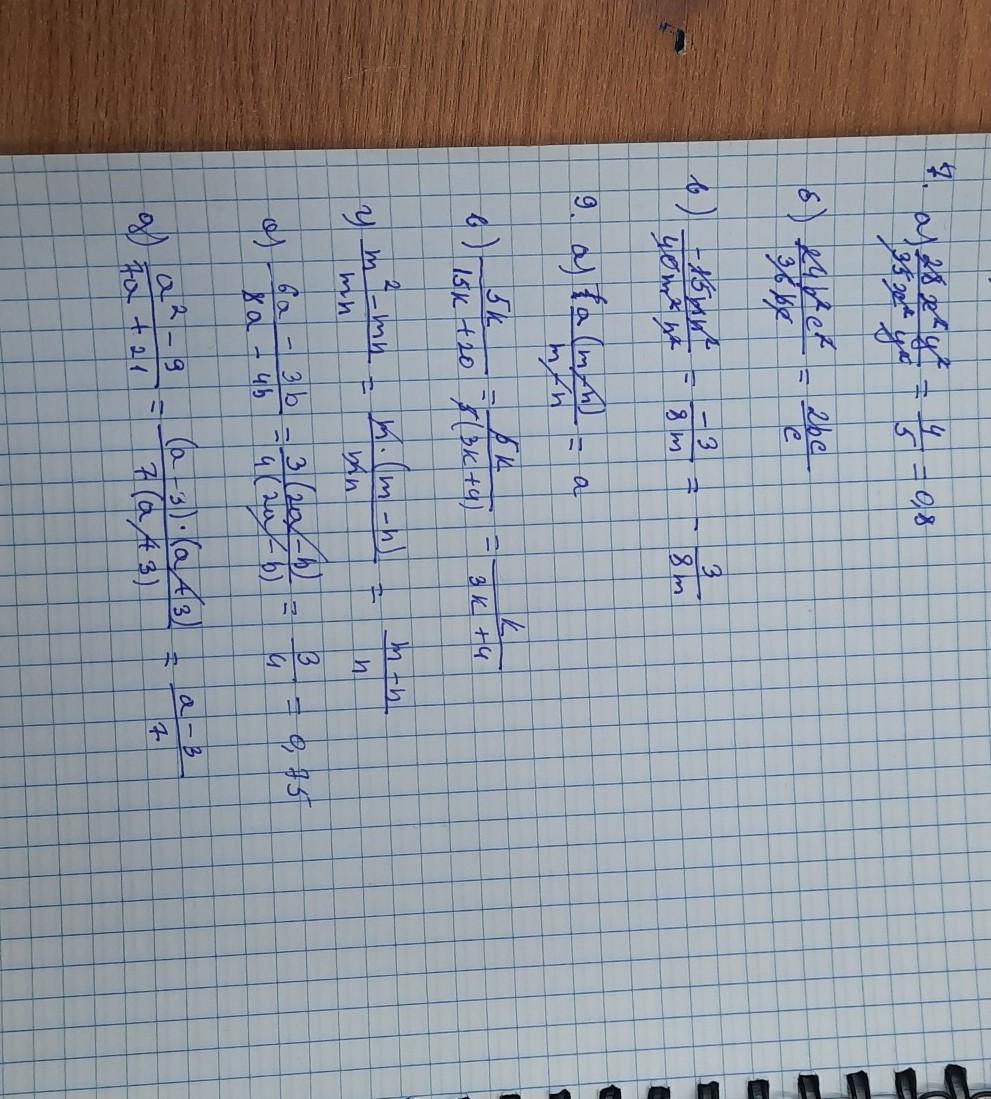 7. а) 28x²y²/35x²y² = 4/5 = 0,8
б) 24b²c²/36bc = 2bc/c
в) -15mn²/40m²n² = -3/8m = - 3/8m
9. а) a(m-n)/m-n = a
в) 5k/15k+20 = 5k/5(3k+4) = k/3k+4
г) m²-mn/mn = m·(m-n)/mn = m-n/n
6a-3b/8a-4b = 3(2a-b)/4(2a-b) = 3/4 = 0,75
a²-9/7a+21 = (a-3)·(a+3)/7(a+3) = a-3/7